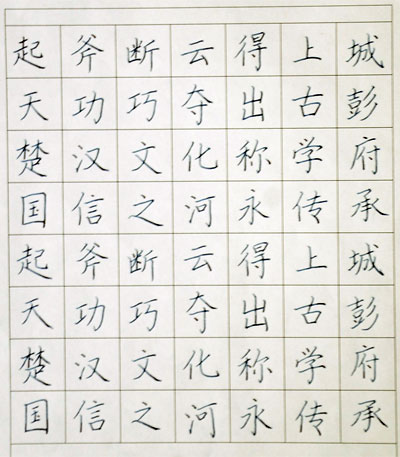 起斧断云得上城
天功巧夺出古彭
楚汉文化称学府
国信之河永传承
起斧断云得上城
天功巧夺出古彭
楚汉文化称学府
国信之河永传承